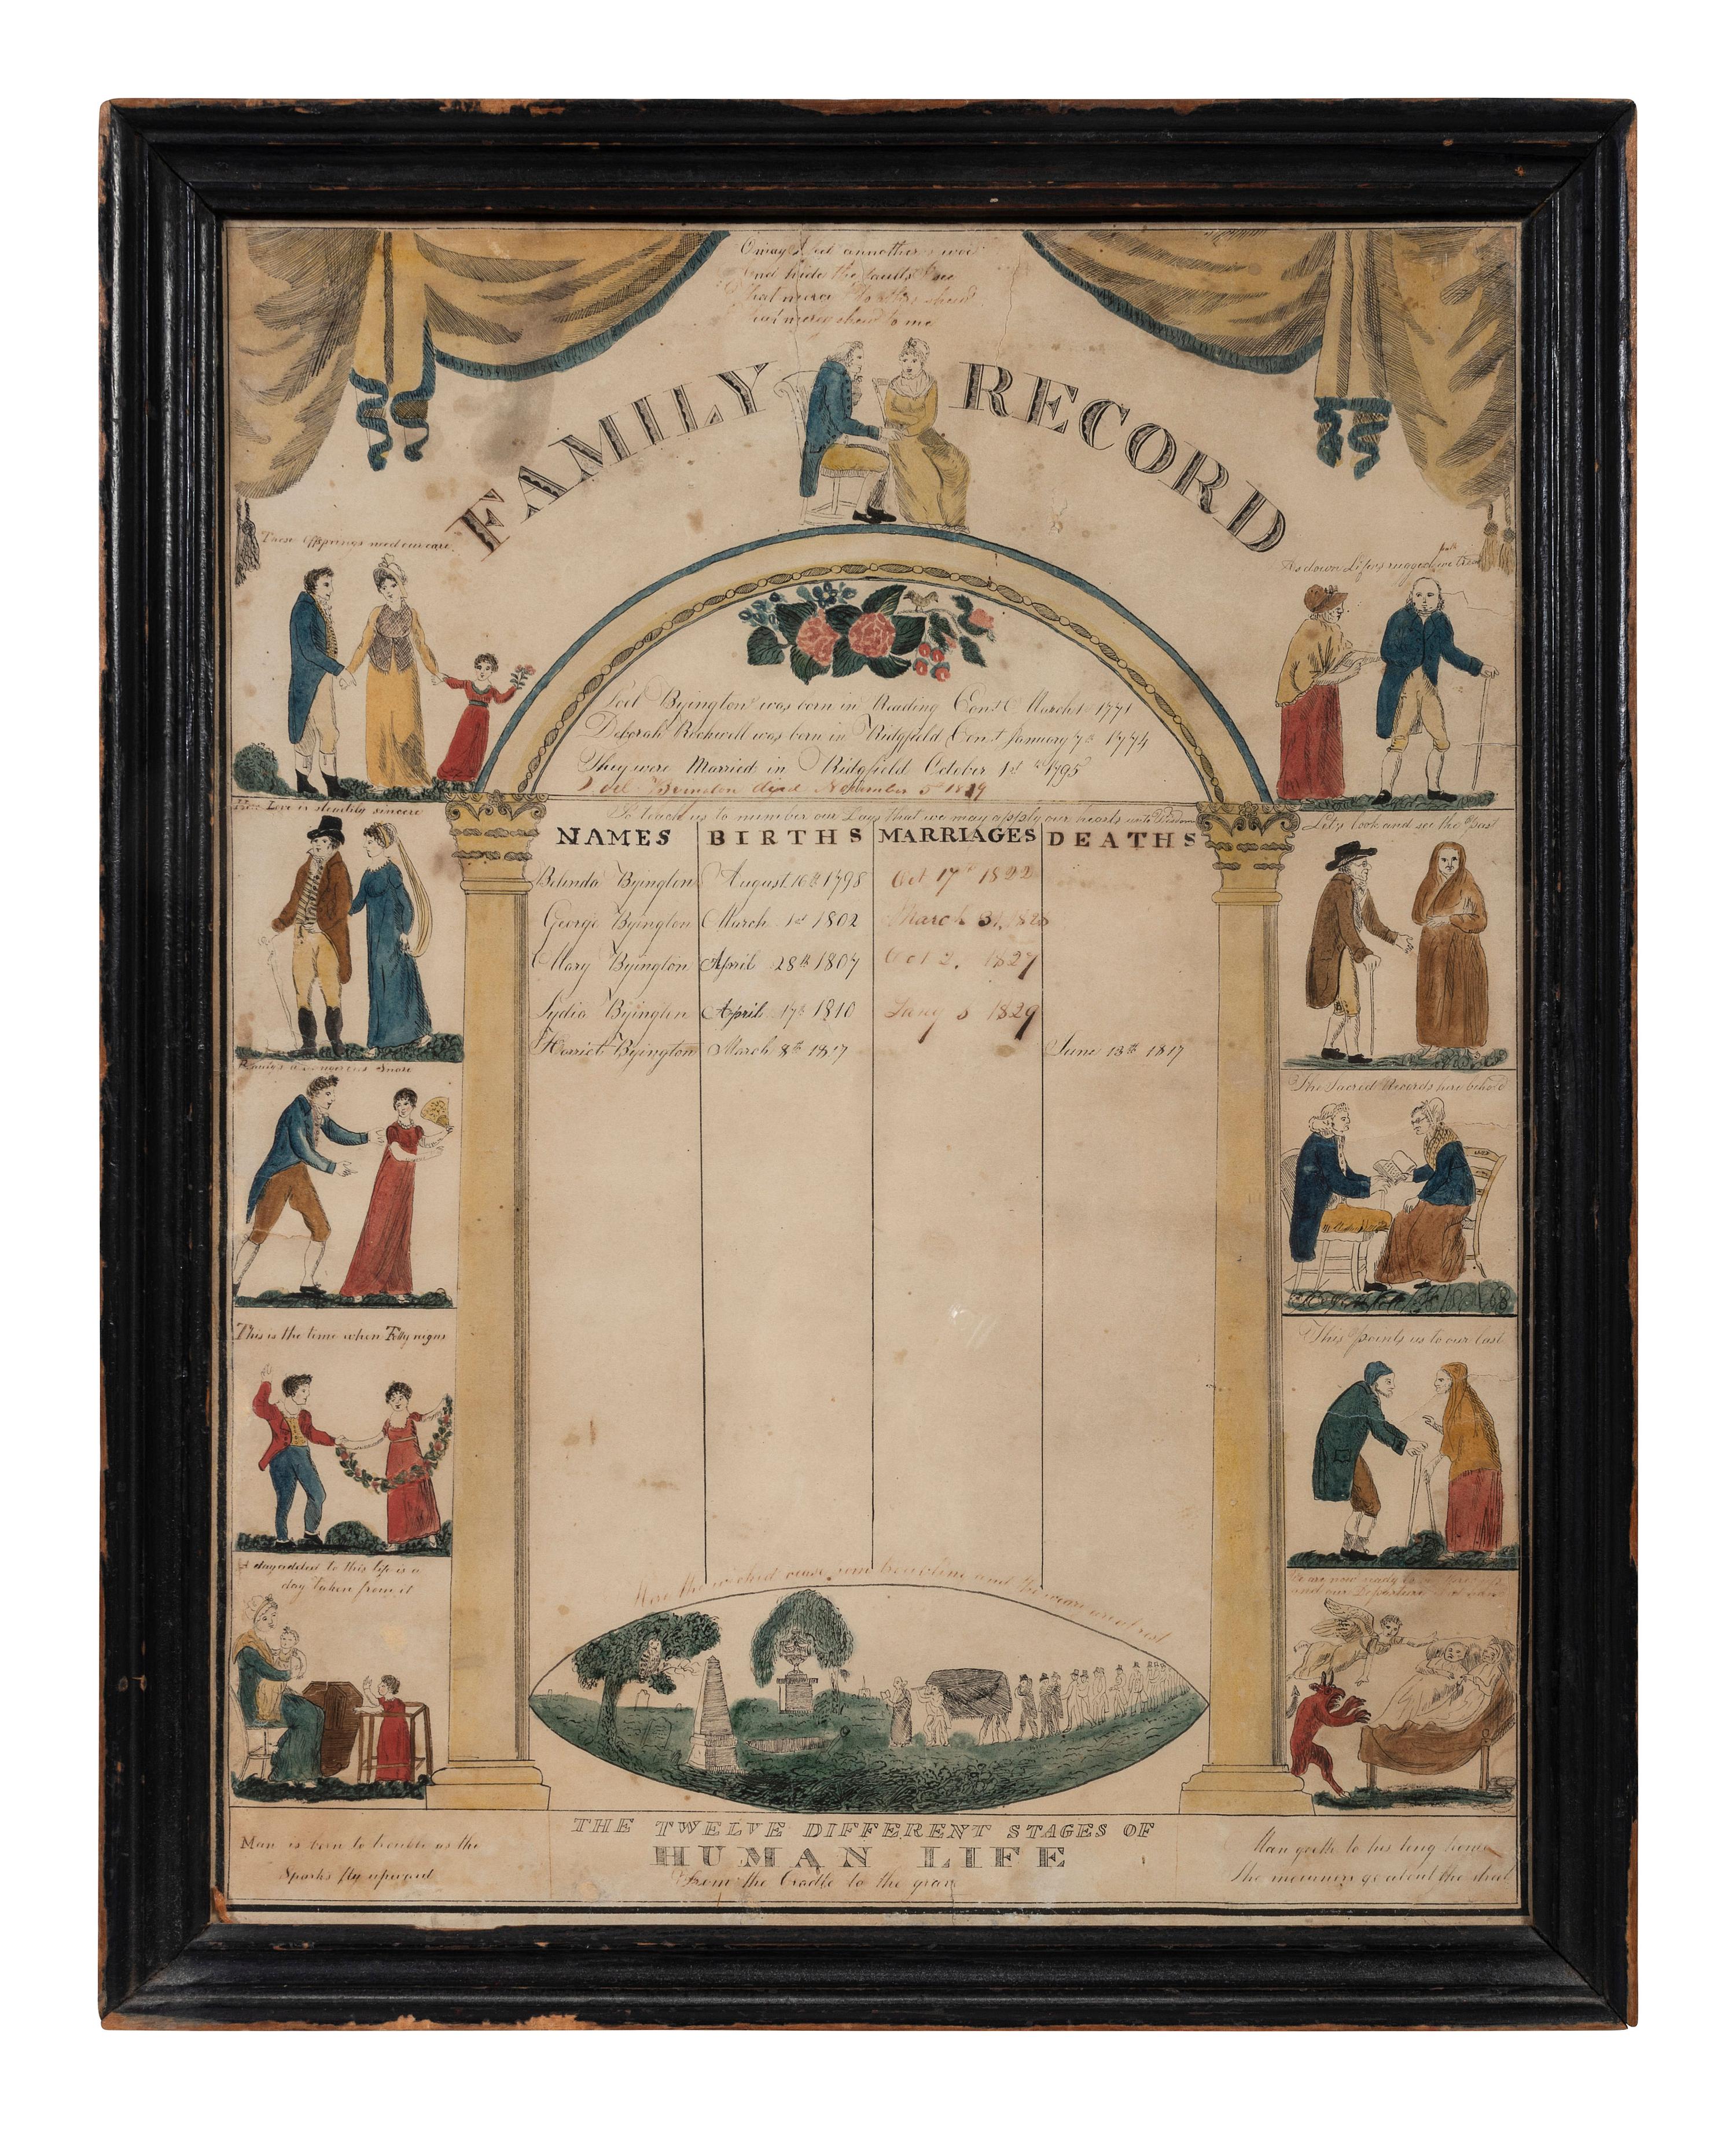 O may I feel annother's woe
And hide the faults I see
That merci I to others shew
That merci shew to me
FAMILY RECORD
These Offsprings need our care
As down Life's rugged path we tread
Joel Byington was born in Reading Conct March 1st 1771
Deborah Rockwell was born in Ridgfield Conct January 7th 1774
They were Married in Ridgfield October 1st 1795
Joel Byington died November 5 1829
How Love is steadily sincere
So teach us to number our Days that we may apply our hearts unto Wisdom
Let's look and see the past
NAMES BIRTHS MARRIAGES DEATHS
Belinda Byington August 16th 1798 Oct 17th 1822
George Byington March 1st 1802 March 31, 1828
Mary Byington April 28th 1807 Oct 2, 1827
Lydia Byington April 17th 1810 Jany 8 1829
Harriet Byington March 8th 1817 June 13th 1817
Beauty's a dangerous Snare
The Sacred Records here behold
This is the time when Folly reigns
This points us to our last
A day added to this life is a
day taken from it
We are now ready to
and our Departure
Here the wicked cease from troubling and the weary are at rest
THE TWELVE DIFFERENT STAGES OF
HUMAN LIFE
From the Cradle to the grave
Man is born to trouble as the
Sparks fly upward
Man goeth to his long home
The mourners go about the street